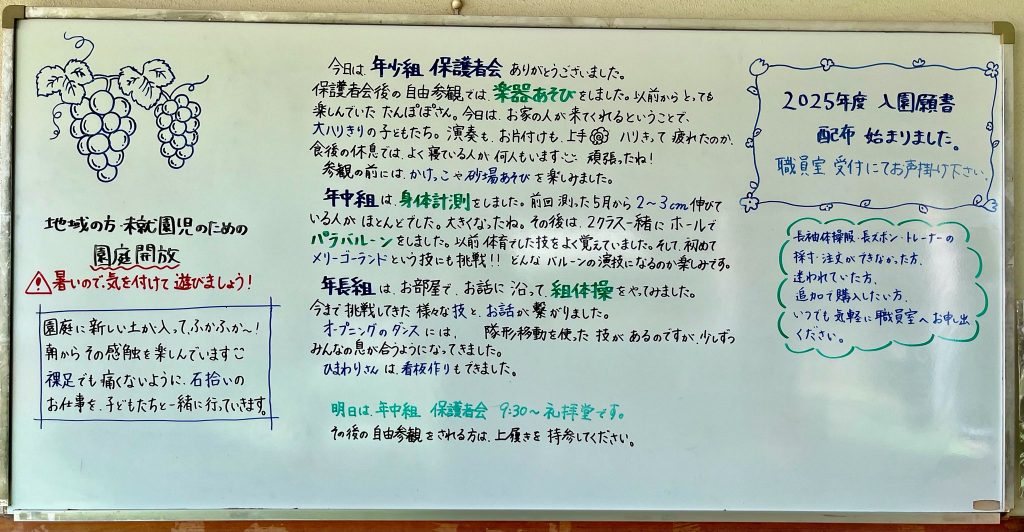 地域の方・未就園児のための
園庭開放
暑いので、気を付けて遊びましょう！
園庭に新しい土が入って、ふかふか〜！
朝からその感触を楽しんでいます
裸足でも痛くないように、石拾いの
お仕事を、子どもたちと一緒に行っていきます。
今日は、年少組 保護者会 ありがとうございました。
保護者会後の自由参観では、楽器あそびをしました。以前からとっても
楽しんでいた たんぽぽさん。今日は、お家の人が来てくれるということで、
大ハリきりの子どもたち。演奏も、お片付けも、上手 ハリきって疲れたのか、
食後の休息では、よく寝ている人が何人もいます 頑張ったね！
参観の前には、かけっこや砂場あそびを楽しみました。
年中組は、身体計測をしました。前回測った5月から2〜3cm伸びて
いる人がほとんどでした。大きくなったね。その後は、2クラス一緒にホールで
パラバルーンをしました。以前体育でした技をよく覚えていました。そして、初めて
メリーゴーランドという技にも挑戦！！どんなバルーンの演技になるのか楽しみです。
年長組は、お部屋で、お話に沿って、組体操をやってみました。
今まで挑戦してきた様々な技と、お話が繋がりました。
オープニングのダンスには、隊形移動を使った技があるのですが、少しずつ
みんなの息が合うようになってきました。
ひまわりさんは、看板作りもできました。
明日は、年中組 保護者会 9:30〜礼拝堂です。
その後の自由参観をされる方は、上履きを持参してください。
2025年度 入園願書
配布 始まりました。
職員室受付にてお声掛け下さい。
長袖体操服・長ズボン・トレーナーの
採寸・注文ができなかった方、
迷われていた方、
追加で購入したい方、
いつでも気軽に職員室へお申し出
ください。